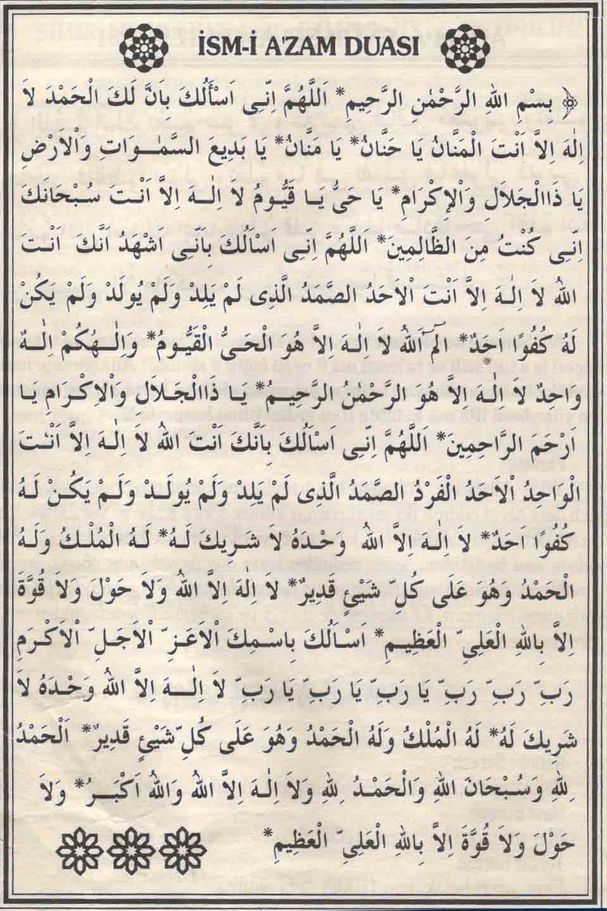 İSM-İ A'ZAM DUASI
﴿ بِسْمِ اللهِ الرَّحْمٰنِ الرَّحِيمِ* اَللّٰهُمَّ اِنِّى اَسْأَلُكَ بِاَنَّ لَكَ الْحَمْدَ لاَ
اِلٰهَ اِلاَّ اَنْتَ الْمَنَّانُ يَا حَنَّانُ* يَا مَنَّانُ* يَا بَدِيعَ السَّمٰوَاتِ وَالْاَرْضِ
يَا ذَاالْجَلاَلِ وَالْاِكْرَامِ* يَا حَىُّ يَا قَيُّومُ لاَ اِلٰهَ اِلاَّ اَنْتَ سُبْحَانَكَ
اِنِى كُنْتُ مِنَ الظَّالِمِينَ* اَللّٰهُمَّ اِنِّى اَسْاَلُكَ بِاَنِّى اَشْهَدُ اَنَّكَ اَنْتَ
اللهُ لاَ اِلٰهَ اِلاَّ اَنْتَ الْاَحَدُ الصَّمَدُ الَّذِى لَمْ يَلِدْ وَلَمْ يُولَدْ وَلَمْ يَكُنْ
لَهُ كُفُوًا اَحَدٌ* الٓمٓ اَللهُ لاَ اِلٰهَ اِلاَّ هُوَ الْحَىُّ الْقَيُّومُ* وَاِلٰهُكُمْ اِلٰهٌ
وَاحِدٌ لاَ اِلٰهَ اِلاَّ هُوَ الرَّحْمٰنُ الرَّحِيمُ* يَا ذَاالْجَلاَلِ وَالْاِكْرَامِ يَا
اَرْحَمَ الرَّاحِمِينَ* اَللّٰهُمَّ اِنِّى اَسْاَلُكَ بِاَنَّكَ اَنْتَ اللهُ لاَ اِلٰهَ اِلاَّ اَنْتَ
الْوَاحِدُ الْاَحَدُ الْفَرْدُ الصَّمَدُ الَّذِى لَمْ يَلِدْ وَلَمْ يُولَدْ وَلَمْ يَكُنْ لَهُ
كُفُوًا اَحَدٌ* لاَ اِلٰهَ اِلاَّ اللهُ وَحْدَهُ لاَ شَرِيكَ لَهُ* لَهُ الْمُلْكُ وَلَهُ
الْحَمْدُ وَهُوَ عَلَى كُلِّ شَيْئٍ قَدِيرٌ* لاَ اِلٰهَ اِلاَّ اللهُ وَلاَ حَوْلَ وَلاَ قُوَّةَ
اِلاَّ بِاللهِ الْعَلِىِّ الْعَظِيمِ* اَسْاَلُكَ بِاسْمِكَ الْاَعَزِّ الْاَجَلِّ الْاَكْرَمِ
رَبِّ رَبِّ رَبِّ يَا رَبِّ يَا رَبِّ يَا رَبِّ لاَ اِلٰهَ اِلاَّ اللهُ وَحْدَهُ لاَ
شَرِيكَ لَهُ* لَهُ الْمُلْكُ وَلَهُ الْحَمْدُ وَهُوَ عَلَى كُلِّ شَيْئٍ قَدِيرٌ* اَلْحَمْدُ
لِلّٰهِ وَسُبْحَانَ اللهِ وَالْحَمْدُ لِلّٰهِ وَلاَ اِلٰهَ اِلاَّ اللهُ وَاللهُ اَكْبَرُ* وَلاَ
حَوْلَ وَلاَ قُوَّةَ اِلاَّ بِاللهِ الْعَلِىِّ الْعَظِيمِ*